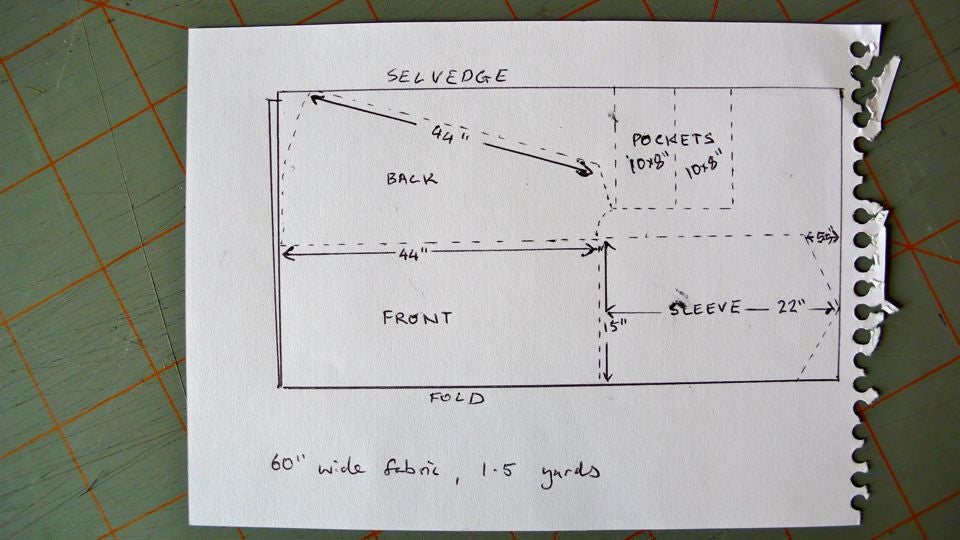 SELVEDGE
44"
POCKETS
10x8"
10x8"
BACK
5.5"
44"
FRONT
SLEEVE 22"
15"
FOLD
60" wide fabric, 1.5 yards